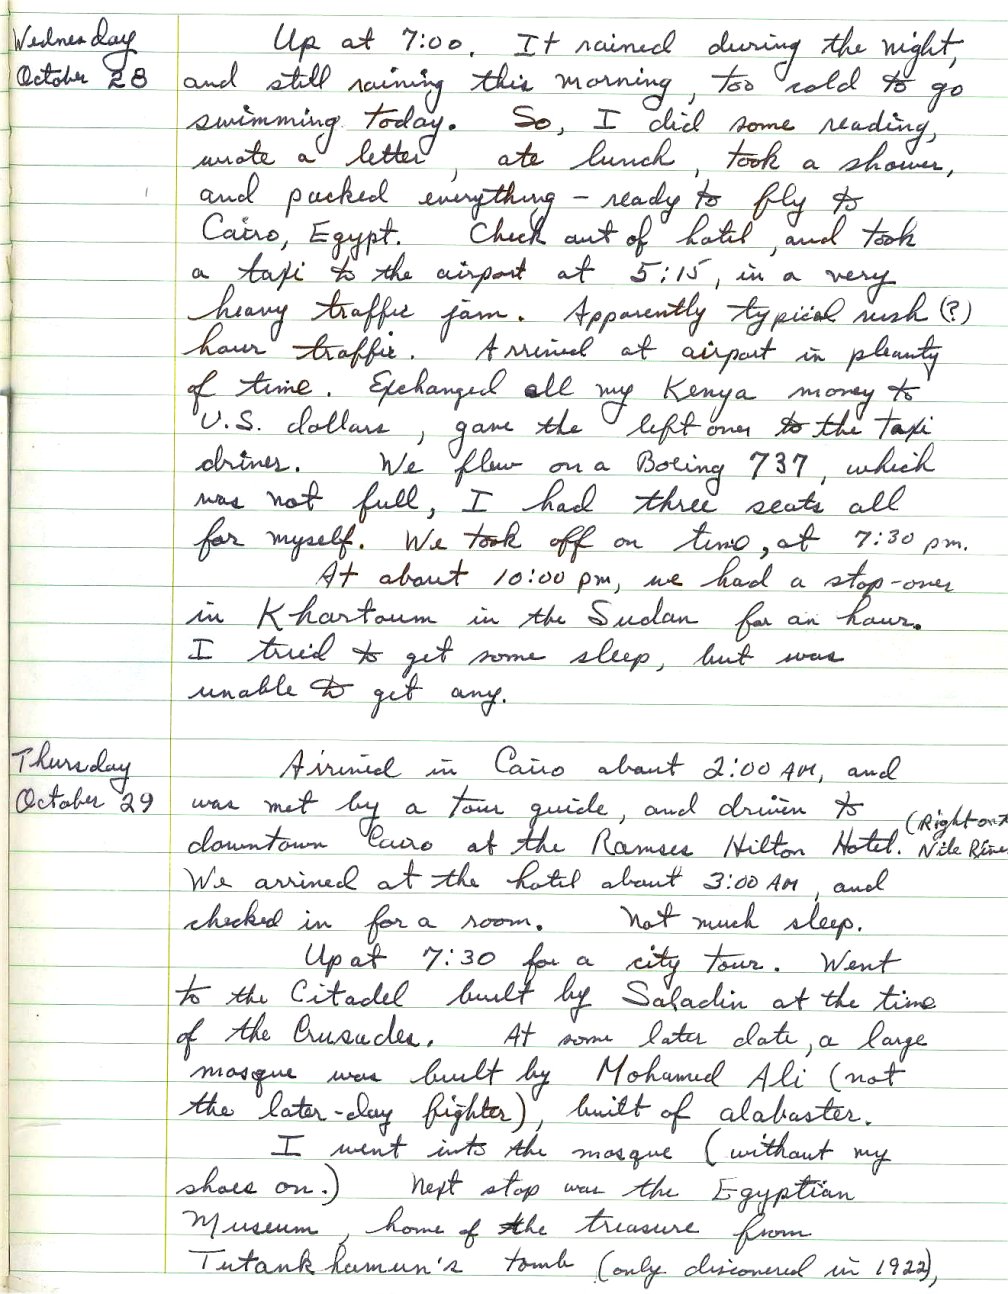 Wednesday
October 28
Up at 7:00. It rained during the night,
and still raining this morning, too cold to go
swimming today. So, I did some reading,
wrote a letter, ate lunch, took a shower,
and packed everything - ready to fly to
Cairo, Egypt. Check out of hotel, and took
a taxi to the airport at 5:15, in a very
heavy traffic jam. Apparently typical rush (?)
hour traffic. Arrived at airport in pleanty
of time. Exchanged all my Kenya money to
U.S. dollars, gave the left over to the taxi
driver. We flew on a Boeing 737, which
was not full, I had three seats all
for myself. We took off on time, at 7:30 pm.
At about 10:00 pm, we had a stop-over
in Khartoum in the Sudan for an hour.
I tried to get some sleep, but was
unable to get any.
Thursday
October 29
Arrived in Cairo about 2:00 AM, and
was met by a tour guide, and driven to
downtown Cairo at the Ramses Hilton Hotel. (Right on t
Nile River
We arrived at the hotel about 3:00 AM, and
checked in for a room. Not much sleep.
Up at 7:30 for a city tour. Went
to the Citadel built by Saladin at the time
of the Crusades. At some later date, a large
mosque was built by Mohamed Ali (not
the later-day fighter), built of alabaster.
I went into the mosque (without my
shoes on.) Next stop was the Egyptian
Museum, home of the treasure from
Tutankhamun's tomb (only discovered in 1922),